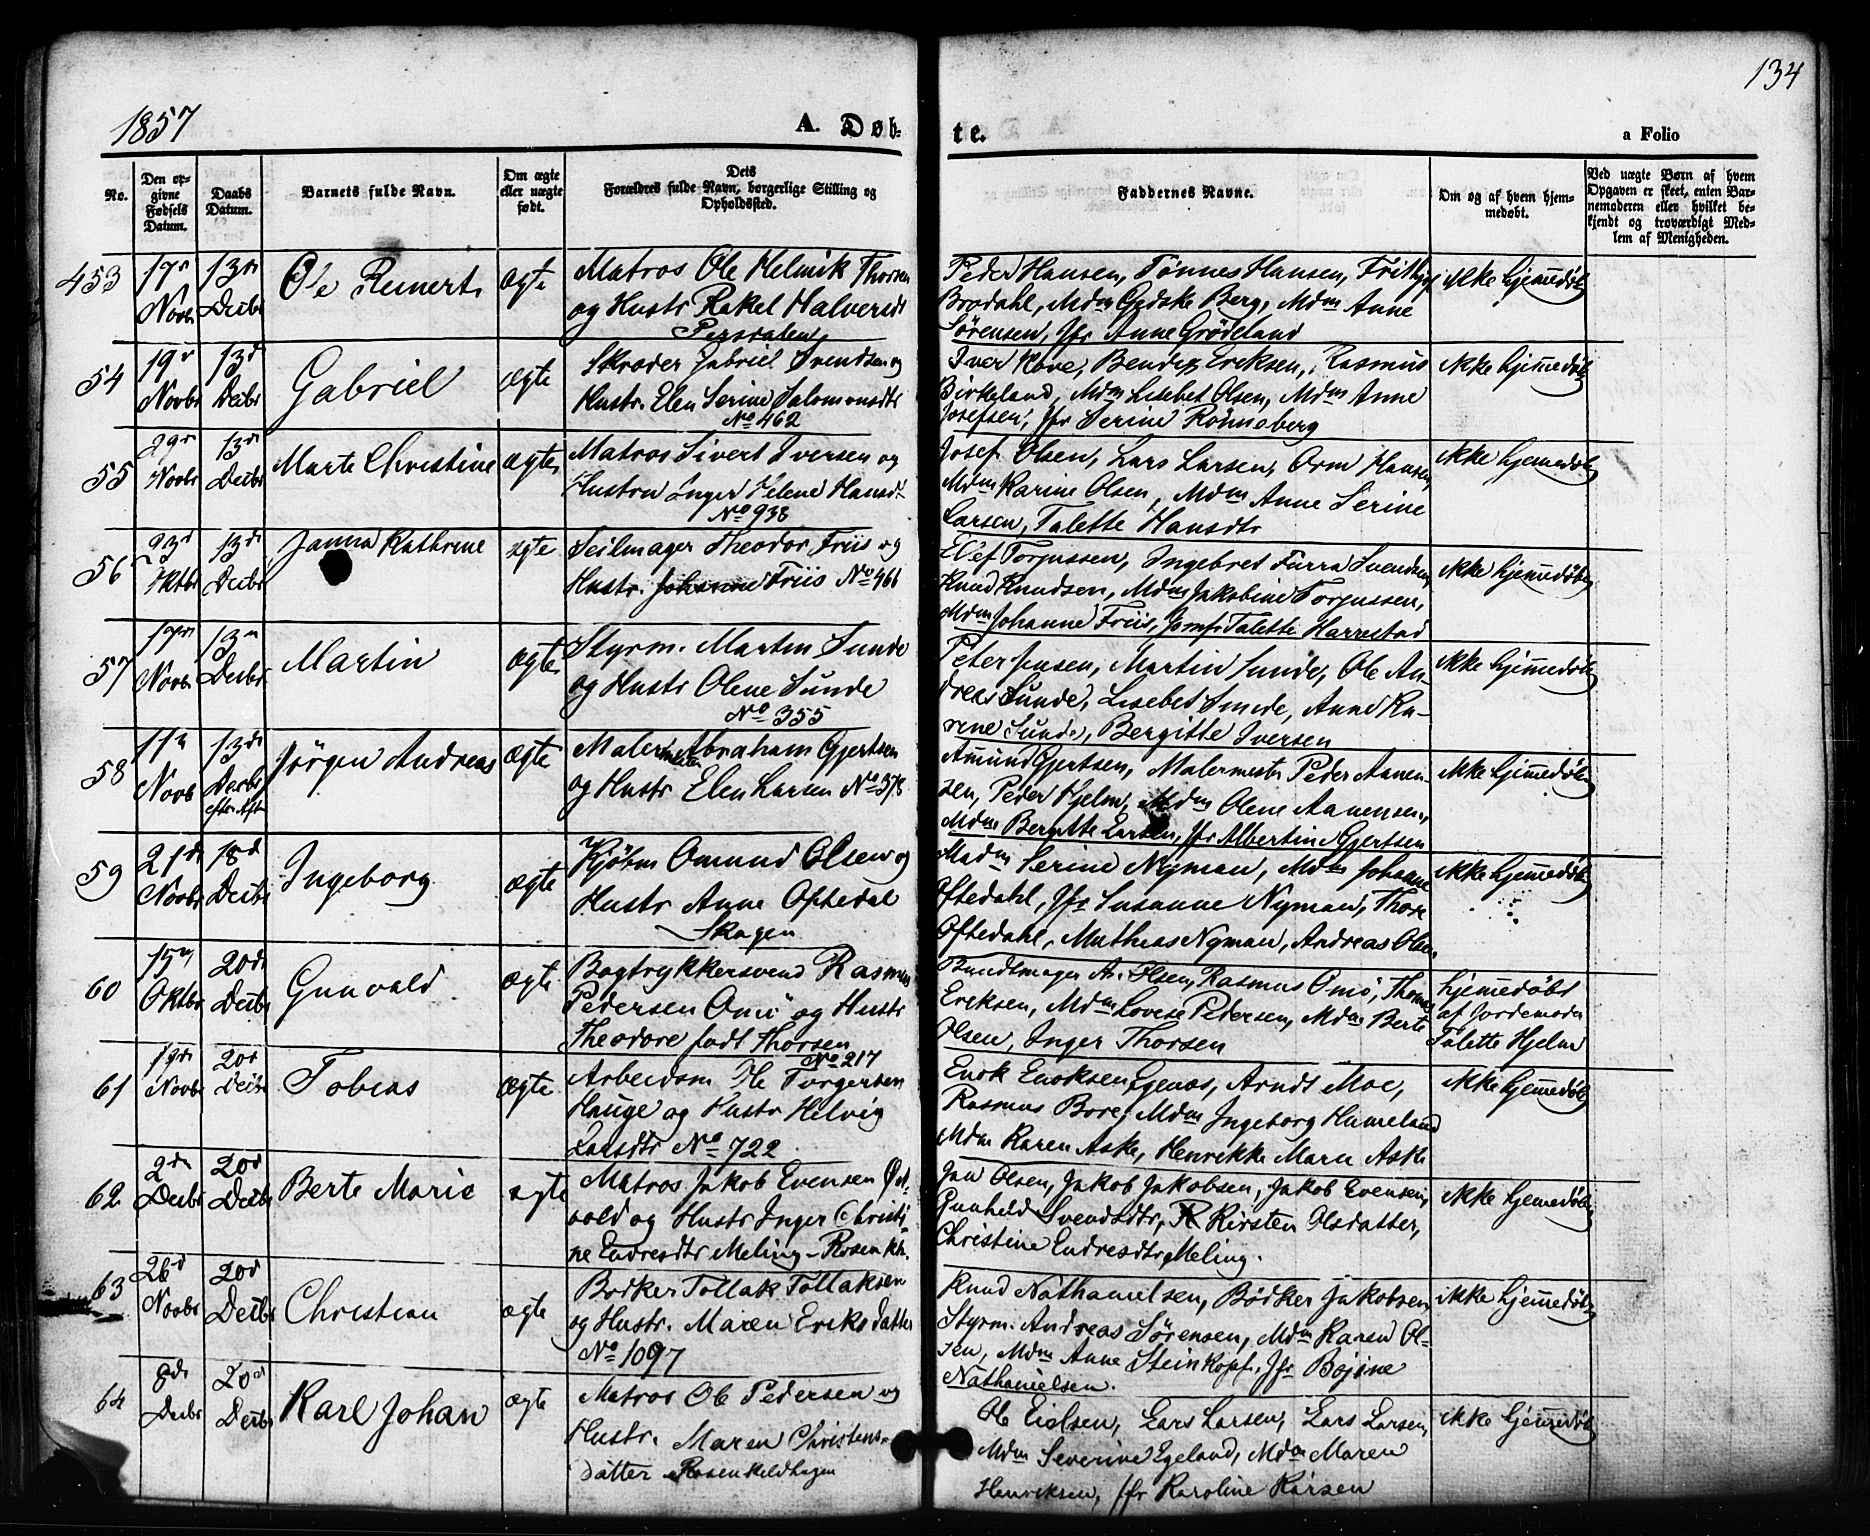 134
1857
A. Døb-
te.
a Folio
No.
Den op-
givne
Fødsels
Datum.
Daabs
Datum.
Barnets fulde Navn.
Om ægte
eller uægte
født.
Dets
Forældres fulde Navn, borgerlige Stilling og
Opholdssted.
Faddernes Navne.
Om og af hvem hjem-
medøbt.
Ved uægte Børn af hvem
Opgaven er skeet, enten Bar-
nemoderen eller hvilket be-
kjendt og troværdigt Med-
lem af Menigheden.
453
17
Novbr
13
Decbr
Ole Reinert
ægte
Matros Ole Helmik Thorsen
og Hustr Rakel Halversdt
Peder Hansen, Tønnes Hansen,
Mdm Gydske Berg, Mdm Anne
Sørensen, Jfr Anne Grødeland
ikke hjemmedøbt
54
19
Novbr
13
Decbr
Gabriel
ægte
Skræder Gabriel Svendsen og
Hustr. Elen Serine Salomonsdtr
No 462
Iver Hove, Eriksen, Rasmus
Birkeland, Mdm Lisebet Olsen, Mdm Anne
Josefsen, Jfr Serine Rønneberg
ikke hjemmedøbt
55
29
Novbr
13
Decbr
Marte Christine
ægte
Matros Sivert Iversen og
Hustru Inger Helene Hansdt
No 938
Josef Olsen, Lars Larsen, Orm Hansen,
Mdm Karine Olsen, Mdm Anne Serine
Larsen, Talette Hansdtr
ikke hjemmedøbt
56
23
Oktbr
13
Decbr
Janna Kathrine
ægte
Seilmager Theodor Friis og
Hustr. Johanne Friis No 466
Elef Torjussen, Ingebret Furra Svendsen,
Knud Knudsen, Mdm Jakobine Torjussen,
Mdm Johanne Friis, Jomfr Talette Harrestad
ikke hjemmedøbt
57
17
Novbr
13
Decbr
Martin
ægte
Styrm. Martin Sunde
og Hustr Olene Sunde
No 355
Peter Jensen, Martin Sunde, Ole An-
dreas Sunde, Lisebet Smede, Anne Ka-
rine Sunde, Bergitte Iversen
ikke hjemmedøbt
58
11
Novb
13
Decbr
Jörgen Andreas
ægte
Maler Abraham Gjertsen
og Hustr Elen Larsen No 378
Amund Gjertsen, Malermester Peder Aanen-
sen, Peder Hjelm, Mdm Olene Aanensen,
Mdm Bergitte Larsen, Jfr Albertine Gjertsen
ikke hjemmedøbt
59
21
Novbr
18
Decbr
Ingeborg
ægte
Kjøbm Omund Olsen og
Hustr Anne Oftedal
Skagen
Madm Serine Nyman, Mdm Johanne
Oftedahl, Jfr Susanne Nyman, Thore
Oftedahl, Mathias Nyman, Andreas Olsen
ikke hjemmedøbt
60
15
Oktbr
20
Decbr
Gunvald
ægte
Bogtrykkersvend Rasmus
Pedersen Omö og Hustr
Theodore født Thorsen
No 217
Bundtmager A. Olsen, Rasmus Omö, Thomas
Eriksen, Mdm Lovise Pedersen, Mdm Berte
Olsen, Inger Thorsen
hjemmedøbt
af Jordemoder
Talette Hjelm
61
19
Novbr
20
Decbr
Tobias
ægte
Arbeidsm Ole Torgersen
Hauge og Hustr Helvig
Larsdtr No 722
Enok Enoksen Egenæs, Arndt Moe,
Rasmus Bore, Mdm Ingeborg Humeland
Mdm Karen Aske, Henrikke Marie Aske
ikke hjemmedøbt
62
2
Decbr
20
Decbr
Berte Marie
ægte
Matros Jakob Evensen Öst-
vold og Hustr Inger Christi-
ne Endresdtr Meling - Rosenkh.
Jan Olsen, Jakob Jakobsen, Jakob Evensen,
Gunheld Svendsdtr, Kirsten Olsdatter,
Christine Endresdtr Meling.
ikke hjemmedøbt
63
26
Novbr
20
Decbr
Christian
ægte
Bødker Tollak Tollaksen
og Hustr. Maren Eriksdatter
No 1097
Knud Nathanielsen, Bødker Jakobsen,
Styrm. Andreas Sørensen, Mdm Karen Ol-
sen, Mdm Anne Steinkopf, Jfr Bojine
Nathanielsen.
ikke hjemmedøbt
64
8
Decbr
20
Decbr
Karl Johan
ægte
Matros Ole Pedersen og
Hustr. Maren Christens-
datter Rosenkildhagen
Ole Eielsen, Lars Larsen, Lars Larsen,
Mdm Severine Egeland, Mdm Maren
Henriksen, Jfr Karoline Karsen
ikke hjemmedøbt